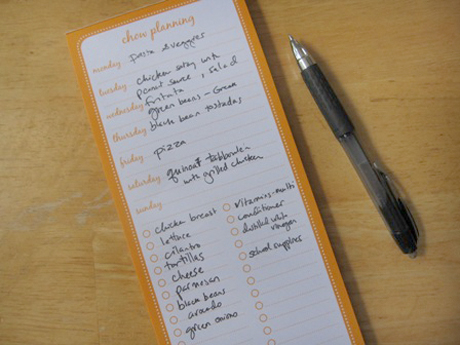 chow planning
monday pasta & veggies
tuesday chicken satay with
peanut sauce, salad
wednesday frittata
green beans - Green
thursday black bean tostadas
friday pizza
saturday quinoa tabbouleh
with grilled chicken
sunday
chicken breast
lettuce
cilantro
tortillas
cheese
parmesan
black beans
avocado
green onions
vitamins - multi
conditioner
distilled white
vinegar
school supplies